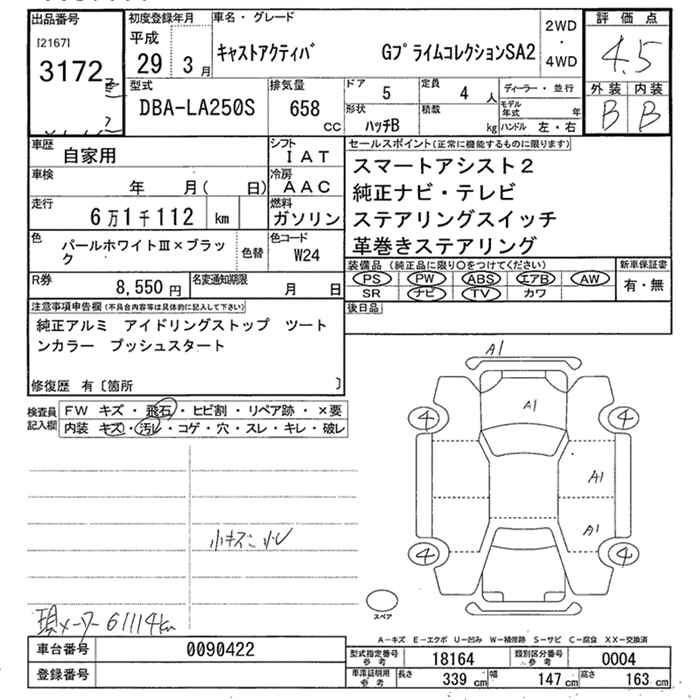 出品番号
[2167]
3172
初度登録年月
平成
29年3月
車名・グレード
キャストアクティバ GプライムコレクションSA2
2WD
・
4WD
評価点
4.5
外装 内装
B B
型式
DBA-LA250S
排気量
658
cc
ドア
5
定員
4人
形状
ハッチB
積載
kg
ディーラー・並行
モデル年式 年
ハンドル 左・右
車歴
自家用
シフト
IAT
車検
年 月( 日)
冷房
AAC
走行
6万1千112 km
燃料
ガソリン
色
パールホワイトⅢ×ブラッ
ク
色替
色コード
W24
R券
8,550円
名変通知期限
月 日
セールスポイント(正常に機能するものに限ります)
スマートアシスト2
純正ナビ・テレビ
ステアリングスイッチ
革巻きステアリング
装備品 (純正品に限り○をつけてください)
PS PW ABS エアB AW
SR ナビ TV カワ
新車保証書
有・無
後日品
注意事項申告欄(不具合内容等は具体的に記入して下さい)
純正アルミ アイドリングストップ ツート
ンカラー プッシュスタート
修復歴 有〔箇所 〕
検査員
記入欄
FW キズ・飛石・ヒビ割・リペア跡・×要
内装 キズ・汚レ・コゲ・穴・スレ・キレ・破レ
小キズ 小U
現メーター61114km
A1
A1
A1
A1
4
4
4
4
スペア
A−キズ E−エクボ U−凹み W−補修跡 S−サビ C−腐食 XX−交換済
車台番号
0090422
登録番号
型式指定番号
参考
18164
類別区分番号
参考
0004
車庫証明用
参考
長さ 339cm 幅 147cm 高さ 163cm